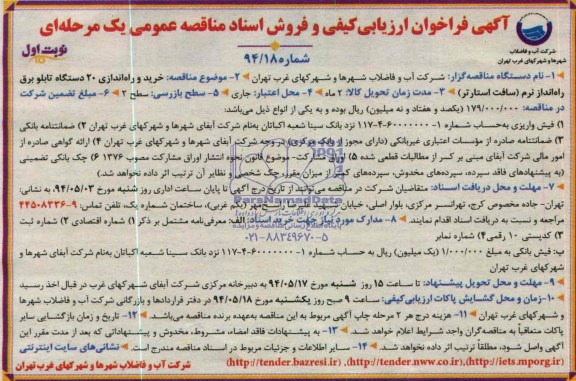 آگهی فراخوان ارزیابی کیفی و فروش اسناد مناقصه عمومی یک مرحله‌ای
شماره ۹۴/۱۸
نوبت اول
شرکت آب و فاضلاب
شهرها و شهرکهای غرب تهران
۱- نام دستگاه مناقصه‌گزار: شرکت آب و فاضلاب شهرها و شهرکهای غرب تهران ۲- موضوع مناقصه: خرید و راه‌اندازی ۲۰ دستگاه تابلو برق
راه‌انداز نرم (سافت استارتر) ۳- مدت زمان تحویل کالا: ۲ ماه ۴- محل اعتبار: جاری ۵- سطح بازرسی: سطح ۲ ۶- مبلغ تضمین شرکت
در مناقصه: ۱۷۹/۰۰۰/۰۰۰ (یکصد و هفتاد و نه میلیون) ریال بوده و به یکی از انواع ذیل می‌باشد:
۱) فیش واریزی به‌حساب شماره ۱-۱۱۷-۴-۶۰۰۰۰۰۰ نزد بانک سینا شعبه اکباتان به‌نام شرکت آبفای شهرها و شهرکهای غرب تهران ۲) ضمانتنامه بانکی
۳) ضمانتنامه صادره از مؤسسات اعتباری غیربانکی (دارای مجوز از بانک مرکزی) در وجه شرکت آبفا شهرها و شهرکهای غرب تهران ۴) گواهی صادره از
امور مالی شرکت آبفای مبنی بر کسر از مطالبات قطعی شده ۵) اوراق مشارکت- موضوع قانون نحوه انتشار اوراق مشارکت مصوب ۱۳۷۶ ۶) چک بانکی تضمینی
(به پیشنهادهای فاقد سپرده، سپرده‌های مخدوش، سپرده‌های کمتر از میزان مقرر، چک شخصی و نظایر آن ترتیب اثر داده نخواهد شد).
۷- مهلت و محل دریافت اسناد: متقاضیان شرکت در مناقصه می‌توانند از تاریخ درج آگهی تا پایان ساعت اداری روز شنبه مورخ ۹۴/۰۵/۰۳ به نشانی:
تهران- جاده مخصوص کرج، تهرانسر مرکزی، بلوار اصلی، خیابان شهید علیرضا راسخ‌مهر (یکم غربی)، ساختمان شماره یک، تلفن تماس: ۹-۴۴۵۰۸۳۳۶
مراجعه و نسبت به دریافت اسناد اقدام نمایند. ۸- مدارک مورد نیاز جهت خرید اسناد: الف: معرفی‌نامه مشتمل بر ذکر ۱) شماره اقتصادی ۲) شماره ثبت
۳) کدپستی ۱۰ رقمی ۴) شماره نمابر
ParsNamadData
۰۲۱-۸۸۳۴۹۶۷۰-۵
ب: فیش بانکی به مبلغ ۱/۰۰۰/۰۰۰ (یک میلیون) ریال به حساب شماره ۱-۱۱۷-۴-۶۰۰۰۰۰۰ نزد بانک سینا شعبه اکباتان به‌نام شرکت آبفای شهرها و
شهرکهای غرب تهران
۹- مهلت و محل تحویل پیشنهاد: تا ساعت ۱۵ روز شنبه مورخ ۹۴/۰۵/۱۷ به دبیرخانه مرکزی شرکت آبفای شهرها و شهرکهای غرب در قبال اخذ رسید
۱۰- زمان و محل گشایش پاکات ارزیابی کیفی: ساعت ۹ صبح روز یکشنبه مورخ ۹۴/۰۵/۱۸ در دفتر قراردادها و بازرگانی شرکت آب و فاضلاب شهرها
و شهرکهای غرب تهران ۱۱- هزینه درج هر ۲ مرحله چاپ آگهی مربوط به این مناقصه به‌عهده برنده مناقصه می‌باشد. ۱۲- تاریخ و زمان بازگشایی سایر
پاکات متعاقباً به مناقصه‌گران واجد شرایط اعلام خواهد شد. ۱۳- به پیشنهادات فاقد امضاء، مشروط، مخدوش و پیشنهاداتی که بعد از مدت مقرر این
آگهی واصل شود، مطلقاً ترتیب اثر داده نخواهد شد. ۱۴- سایر اطلاعات و جزئیات مربوط در اسناد مناقصه مندرج است. نشانی‌های سایت اینترنتی
(http://iets.mporg.ir)، (http://tender.nww.co.ir)، (http://tender.bazresi.ir)
شرکت آب و فاضلاب شهرها و شهرکهای غرب تهران